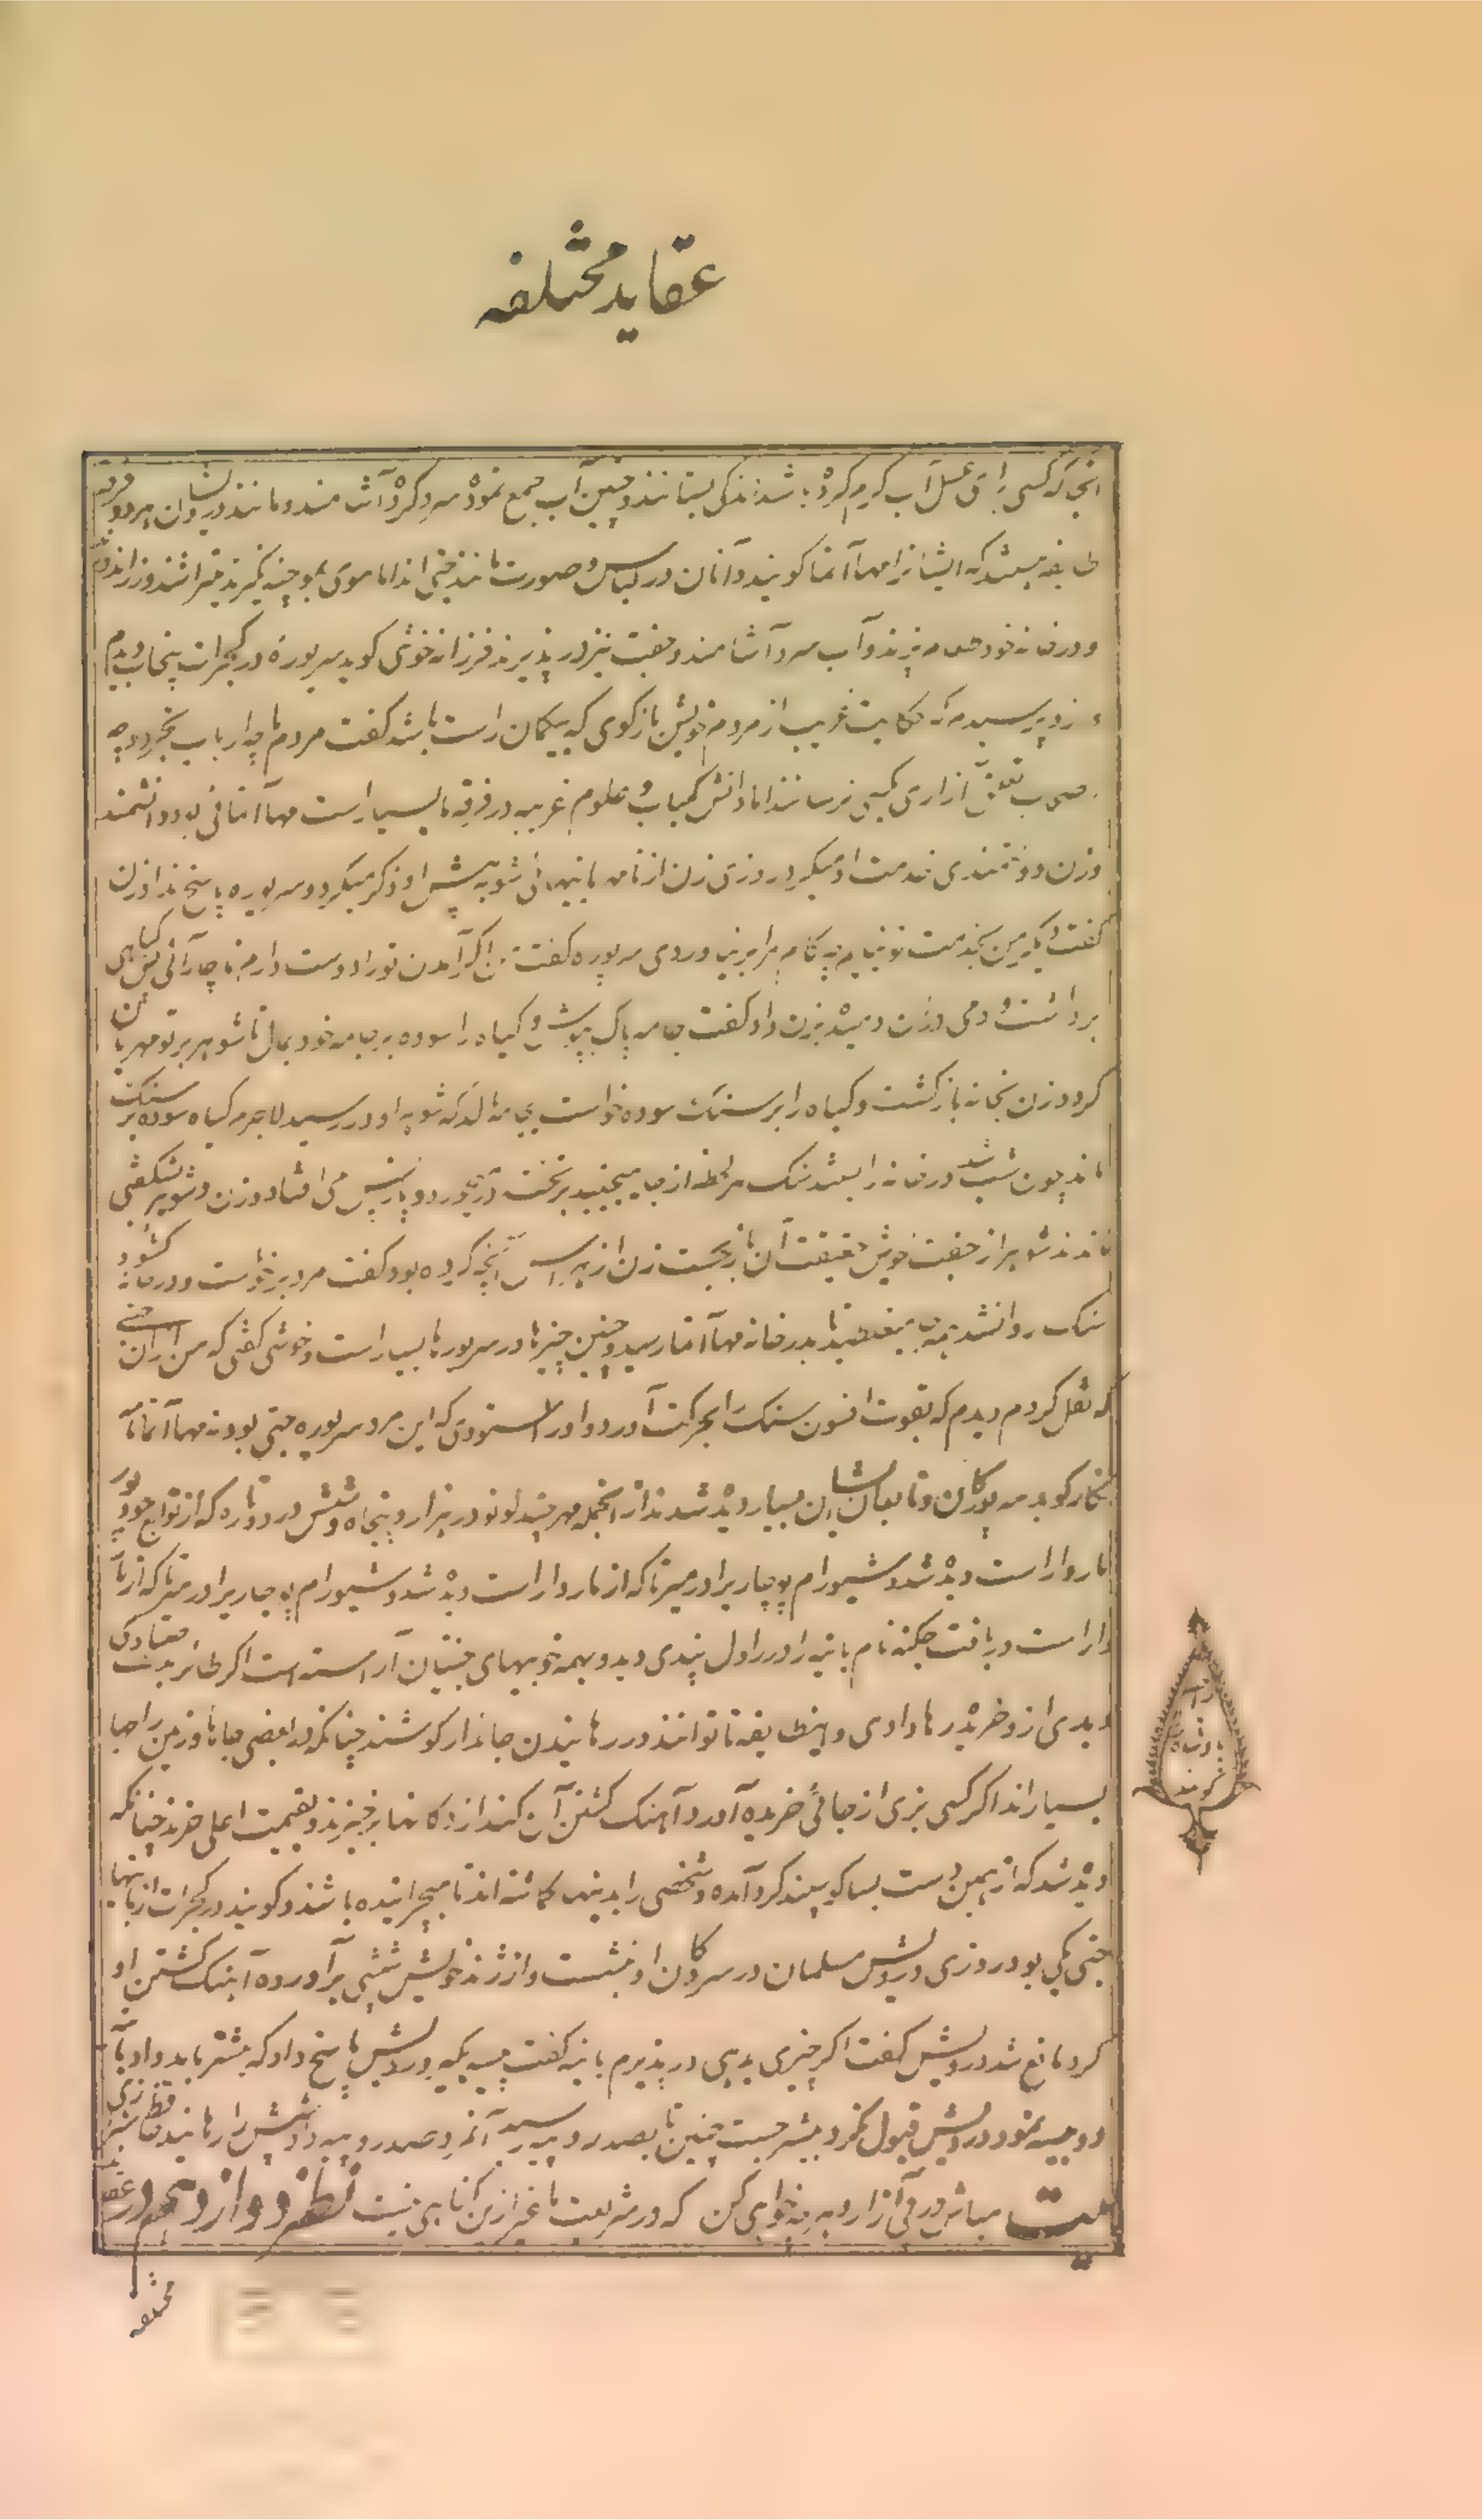 عقاید مختلفه
آنجا که کسی برای غسل آب گرم کرده باشد اندکی بستانند و چنین آب جمع نموده سرد کرده آشامند و مانند درویشان هر دو فرقه
طایفه هستند که ایشانرا مهاآتما گویند و آنان در لباس و صورت مانند جتی اند اما موی بموچینه نگیرند بتراشند و زر اندوزند
و در خانه خود طعام پزند و آب سرد آشامند و جفت نیز در پذیرند فرزانه خوشی گوید سریوره در گجرات پنجاب دیدم
ازو پرسیدم که حکایت غریب از مردم خویش بازگوی که بیگمان راست باشد گفت مردم ما چه ارباب تجرد و چه
صاحب تعلق آزاری بکسی نرسانند اما دانش کیمیا و علوم غریبه در فرقه ما بسیار است مهاآتمائی بود دانشمند
و زن دولتمندی خدمت او میکرد روزی زن از نامهربانیهای شوهر پیش او ذکر میکرد و سریوره پاسخ نداد زن
گفت دیگر من بخدمت تو نیایم چه کام مرا بر نیاوردی سریوره گفت من اگر آمدن تو را دوست دارم ناچار آنی پس گیاهی
برداشت و دمی در آن دمیده بزن داد گفت جامه پاک بپوش و گیاه را سوده بر جامه خود بمال تا شوهر بر تو مهربان
گردد زن بخانه بازگشت و گیاه را بر سنگ سوده خواست بجامه مالد که شوهر او در رسید لاجرم گیاه سوده بر سنگ
ماند چون شب شد در خانه را بستند سنگ هر لحظه از جا میجنبید بر تخت در میخورد و باز پس می افتاد و زن و شوهر بشگفتی
ماندند شوهر از جفت خویش حقیقت آن باز جست زن از هراس آنچه کرده بود گفت مرد برخاست و در خانه گشود
سنگ روانشد و میغلطید تا بدر خانه مهاآتما رسید و چنین چیزها در سریورها بسیار است و خوشی گفتی که من از آن جتی
که نقل کردم دیدم که بقوت افسون سنگ را بحرکت آوردو او را استودی که این مرد سریوره جتی بود نه مهاآتما نامه
نگار گوید سریورگان و تابعان ایشان بسیار دیده شدند از آنجمله مهرچند لونو در هزار و پنجاه و شش در دوتاره که از توابع جودپور
مارواراست دیده شد و شیورام پوجاری را در میرتا که از ماروار است دیده شد و شیورام پوجاری را در میرتا که از ما
روار است دریافت جگنه نام بانیه را در راول پندی دید و بهمه خوبیهای جتیان آراسته است اگر طائر بدست صیادی
دیدی ازو خریده رها دادی و این طایفه تا توانند در رهانیدن جاندار کوشند چنانکه در بعضی جاها و زمین راجها
بسیار اند اگر کسی بزی از جائی خریده آورد و آهنگ کشتن آن کند از دکانها بر خیزند و بقیمت اعلی خرند چنانکه
دیده شد که از همین دست بسا گوسپند گرد آمده و شخصی را بدینها گماشته اند تا میچرانیده باشد و گویند در گجرات از بانیها
جتی یکی بود روزی درویش مسلمان در سر دکان او نشست و از ژنده خویش شپشی برآورده آهنگ کشتن او
کرد مانع شد درویش گفت اگر چیزی بدهی در پذیرم بانیه گفت پیسه بگیر درویش پاسخ داد که بیشتر باید داد تا
دو پیسه نمود درویش قبول نکرد و بیشتر جست چنین تا بصد روپیه رسید آنمرد صد روپیه داد و شپش را رهانید حافظ شیرازی
بیت مباش در پی آزار و هر چه خواهی کن که در شریعت ما غیر ازین گناهی نیست نظر دوازدهم در عقاید
مختلفه
راجه
بادشاه
گویند